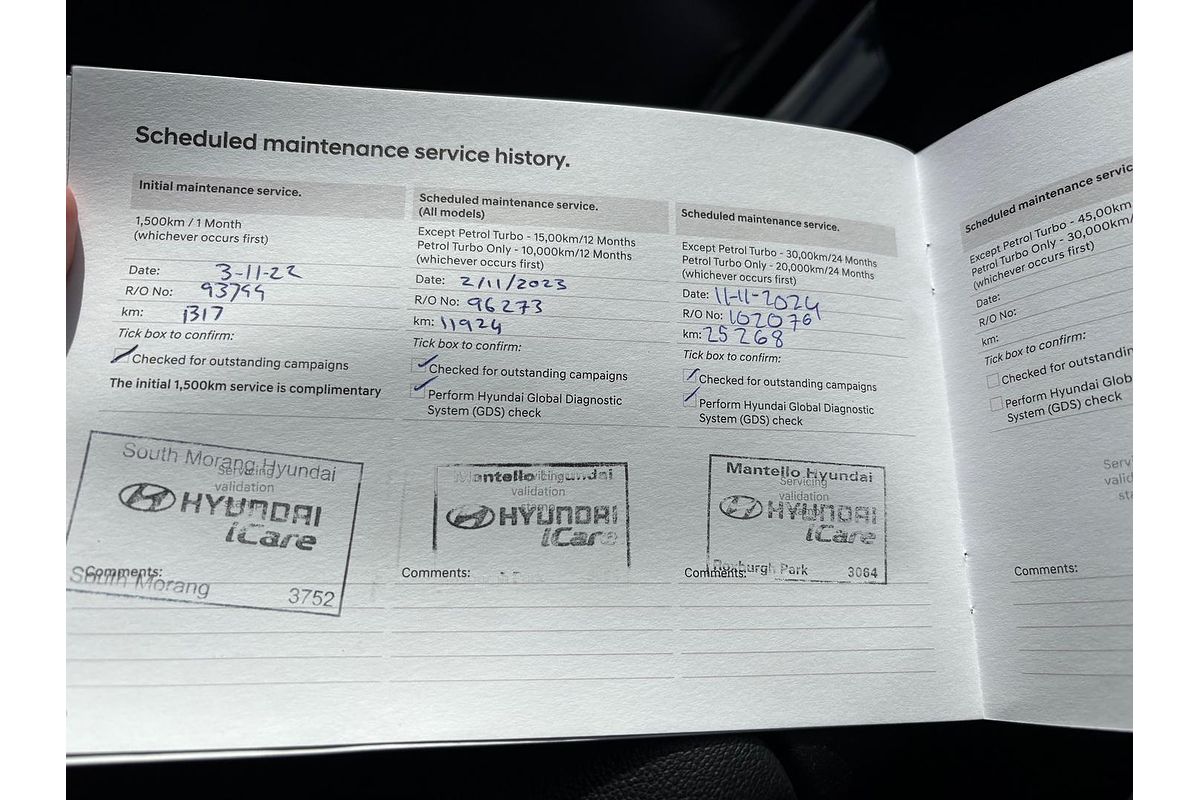 Scheduled maintenance service history.
Initial maintenance service.
1,500km / 1 Month
(whichever occurs first)
Date: 3-11-22
R/O No: 93744
km: 1317
Tick box to confirm:
Checked for outstanding campaigns
The initial 1,500km service is complimentary
South Morang Hyundai
Servicing
validation
HYUNDAI
iCare
Comments:
South Morang 3752
Scheduled maintenance service.
(All models)
Except Petrol Turbo - 15,00km/12 Months
Petrol Turbo Only - 10,000km/12 Months
(whichever occurs first)
Date: 2/11/2023
R/O No: 96273
km: 11924
Tick box to confirm:
Checked for outstanding campaigns
Perform Hyundai Global Diagnostic
System (GDS) check
Mantello Hyundai
validation
HYUNDAI
iCare
Comments:
Scheduled maintenance service.
Except Petrol Turbo - 30,00km/24 Months
Petrol Turbo Only - 20,000km/24 Months
(whichever occurs first)
Date: 11-11-2024
R/O No: 102076
km: 25268
Tick box to confirm:
Checked for outstanding campaigns
Perform Hyundai Global Diagnostic
System (GDS) check
Mantello Hyundai
Servicing
validation
HYUNDAI
iCare
Roxburgh Park 3064
Comments:
Scheduled maintenance servic
Except Petrol Turbo - 45,00km
Petrol Turbo Only - 30,000km/
(whichever occurs first)
Date:
R/O No:
km:
Tick box to confirm:
Checked for outstandin
Perform Hyundai Glob
System (GDS) check
Serv
valid
sta
Comments: